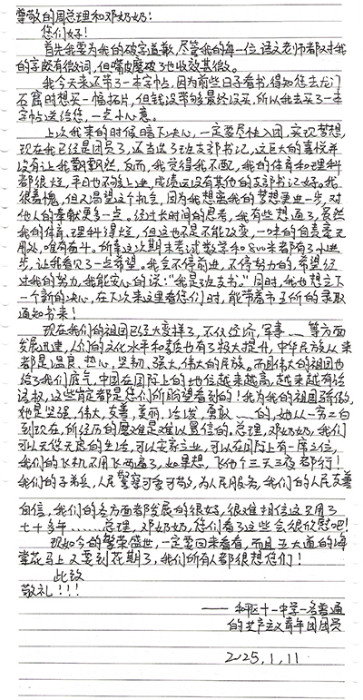 尊敬的周总理和邓奶奶：
您们好！
首先我要为我的破字道歉，尽管我的每一位语文老师都对我
的字颇有微词，但嘴皮磨破了也收效甚微。
我今天来还带了一本字帖，因为前些日子看书，得知您去龙门
石窟时想买一幅拓片，但钱没带够最终没买，所以我去买了一本
字帖送给您，一点小心意。
上次我来的时候暗下决心，一定要尽快入团，实现梦想，
现在我已经是团员了，还当选了班支部书记，这巨大的喜悦并
没有让我飘飘然，反而，我觉得我不配，我的体育和理科
都很烂，平日也不够上进，成绩远没有其他的支部书记好。我
很羞愧，但又渴望这个机会，因为我想离我的梦想更进一步，对
他人的奉献更多一点。经过长时间的思考，我有些想通了，虽然
我的体育、理科得烂，但这也不是不能改变，一味的自责毫无
用处，唯有奋斗。所幸这次期末考试数学和800米都有了小进
步，让我看见了一点希望。我会不停前进，不停努力的，希望经
过我的努力，我能安心的说："我是班支书。"同时，我也想立下
一个新的决心，在下次来这里看您们时，能带着市重点的录取
通知书来！
现在我们的祖国已经大变样了，不仅经济、军事……等方面
发展迅速，人们的文化水平和素质也有了极大提升，中华民族从来
都是温良、热心、坚韧、强大、伟大的民族。而且伟大的祖国也
给了我们底气，中国在国际上的地位越来越高，越来越有话
语权，这些肯定都是您们所盼望看到的！我为我的祖国骄傲，
她是坚强、伟大、友善、美丽、活泼、勇敢……的，她从一穷二白
到现在，所经历的磨难是难以置信的。总理，邓奶奶，我们
可以无忧无虑的生活，可以安家立业，可以在国际上有一席之位，
我们的飞机不用飞两遍了，如果想，飞他个三天三夜都行！
我们的子弟兵、人民警察可爱可敬，为人民服务，我们的人民友善
自信，我们的各方面都发展的很好，很难相信这只用了
七十多年……总理，邓奶奶，您们看了这些会很欣慰吧！
现如今的繁荣盛世，一定要回来看看，而且五大道的海
棠花马上又要到花期了，我们所有人都很想您们！
此致
敬礼！！！
——和平区十一中学一名普通
的共产主义青年团团员
2025.1.11